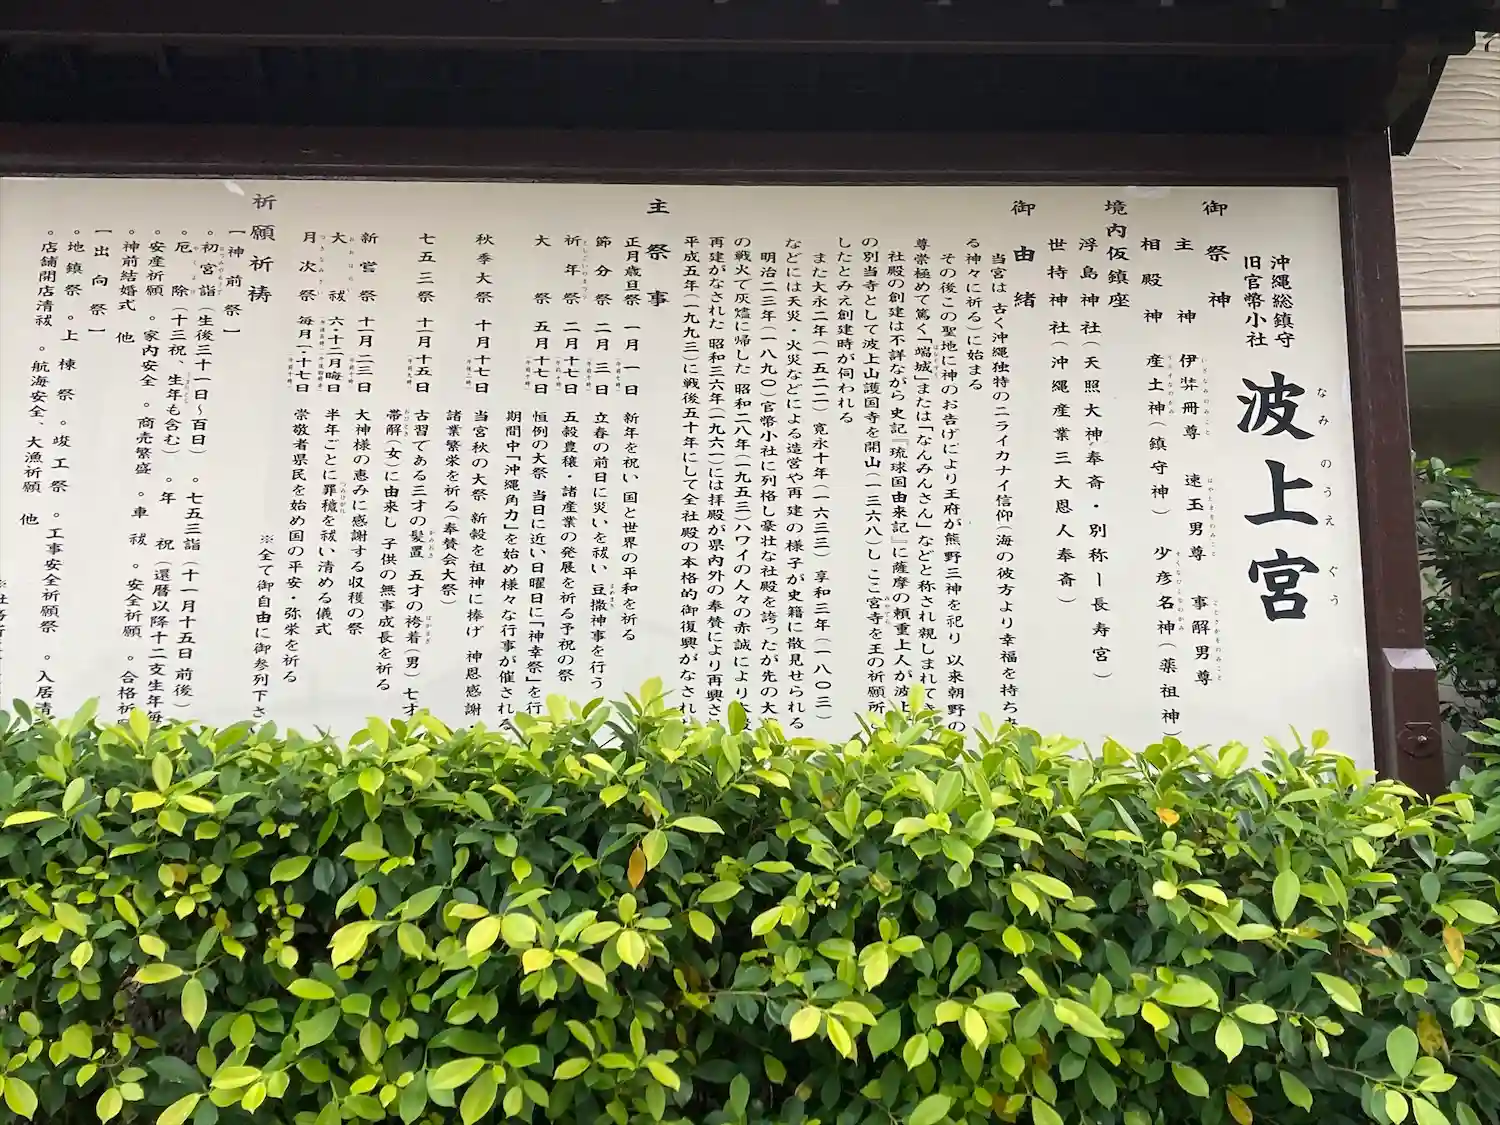 沖縄総鎮守
旧官幣小社
波上宮
なみのうえぐう
御祭神
主神　伊弉冊尊　速玉男尊　事解男尊
相殿神　産土神(鎮守神)　少彦名神(薬祖神)
境内仮鎮座
浮島神社(天照大神奉斎・別称ー長寿宮)
世持神社(沖縄産業三大恩人奉斎)
御由緒
当宮は 古く沖縄独特のニライカナイ信仰(海の彼方より幸福を持ち
る神々に祈る)に始まる
その後この聖地に神のお告げにより王府が熊野三神を祀り 以来朝野の
尊崇極めて篤く「端城」または「なんみんさん」などと称され親しまれて
社殿の創建は不詳ながら 史記『琉球国由来記』に薩摩の頼重上人が波上
の別当寺として波上山護国寺を開山(一三六八)し ここ宮寺を王の祈願所
したとみえ創建時が伺われる
また大永二年(一五二二) 寛永十年(一六三三) 享和三年(一八〇三)
などには天災・火災などによる造営や再建の様子が史籍に散見せられる
明治二三年(一八九〇)官幣小社に列格し豪壮な社殿を誇ったが先の大
の戦火で灰燼に帰した 昭和二八年(一九五三)ハワイの人々の赤誠により本殿
再建がなされた 昭和三六年(一九六一)には拝殿が県内外の奉賛により再興さ
平成五年(一九九三)に戦後五十年にして全社殿の本格的御復興がなされ
主祭事
正月歳旦祭　一月一日　新年を祝い 国と世界の平和を祈る
節分祭　二月三日　立春の前日に災いを祓い 豆撒神事を行う
祈年祭　二月十七日　五穀豊穣・諸産業の発展を祈る予祝の祭
大祭　五月十七日　恒例の大祭 当日に近い日曜日に「神幸祭」を行
期間中「沖縄角力」を始め様々な行事が催される
秋季大祭　十月十七日　当宮秋の大祭 新穀を祖神に捧げ 神恩感謝・
諸業繁栄を祈る(奉賛会大祭)
七五三祭　十一月十五日　古習である三才の髪置 五才の袴着(男) 七才
帯解(女)に由来し 子供の無事成長を祈る
新嘗祭　十一月二三日　大神様の恵みに感謝する収穫の祭
大祓　六・十二月晦日　半年ごとに罪穢を祓い清める儀式
月次祭　毎月一・十七日　崇敬者県民を始め国の平安・弥栄を祈る
※全て御自由に御参列下さ
祈願祈祷
【神前祭】
。初宮詣(生後三十一日～百日)　。七五三詣(十一月十五日前後)
。厄除(十三祝、生年も含む)　。年祝(還暦以降十二支生年毎
。安産祈願　。家内安全　。商売繁盛　。車祓　。安全祈願　。合格祈願
。神前結婚式　他
【出向祭】
。地鎮祭　。上棟祭　。竣工祭　。工事安全祈願祭　。入居清
。店舗開店清祓　。航海安全、大漁祈願　他